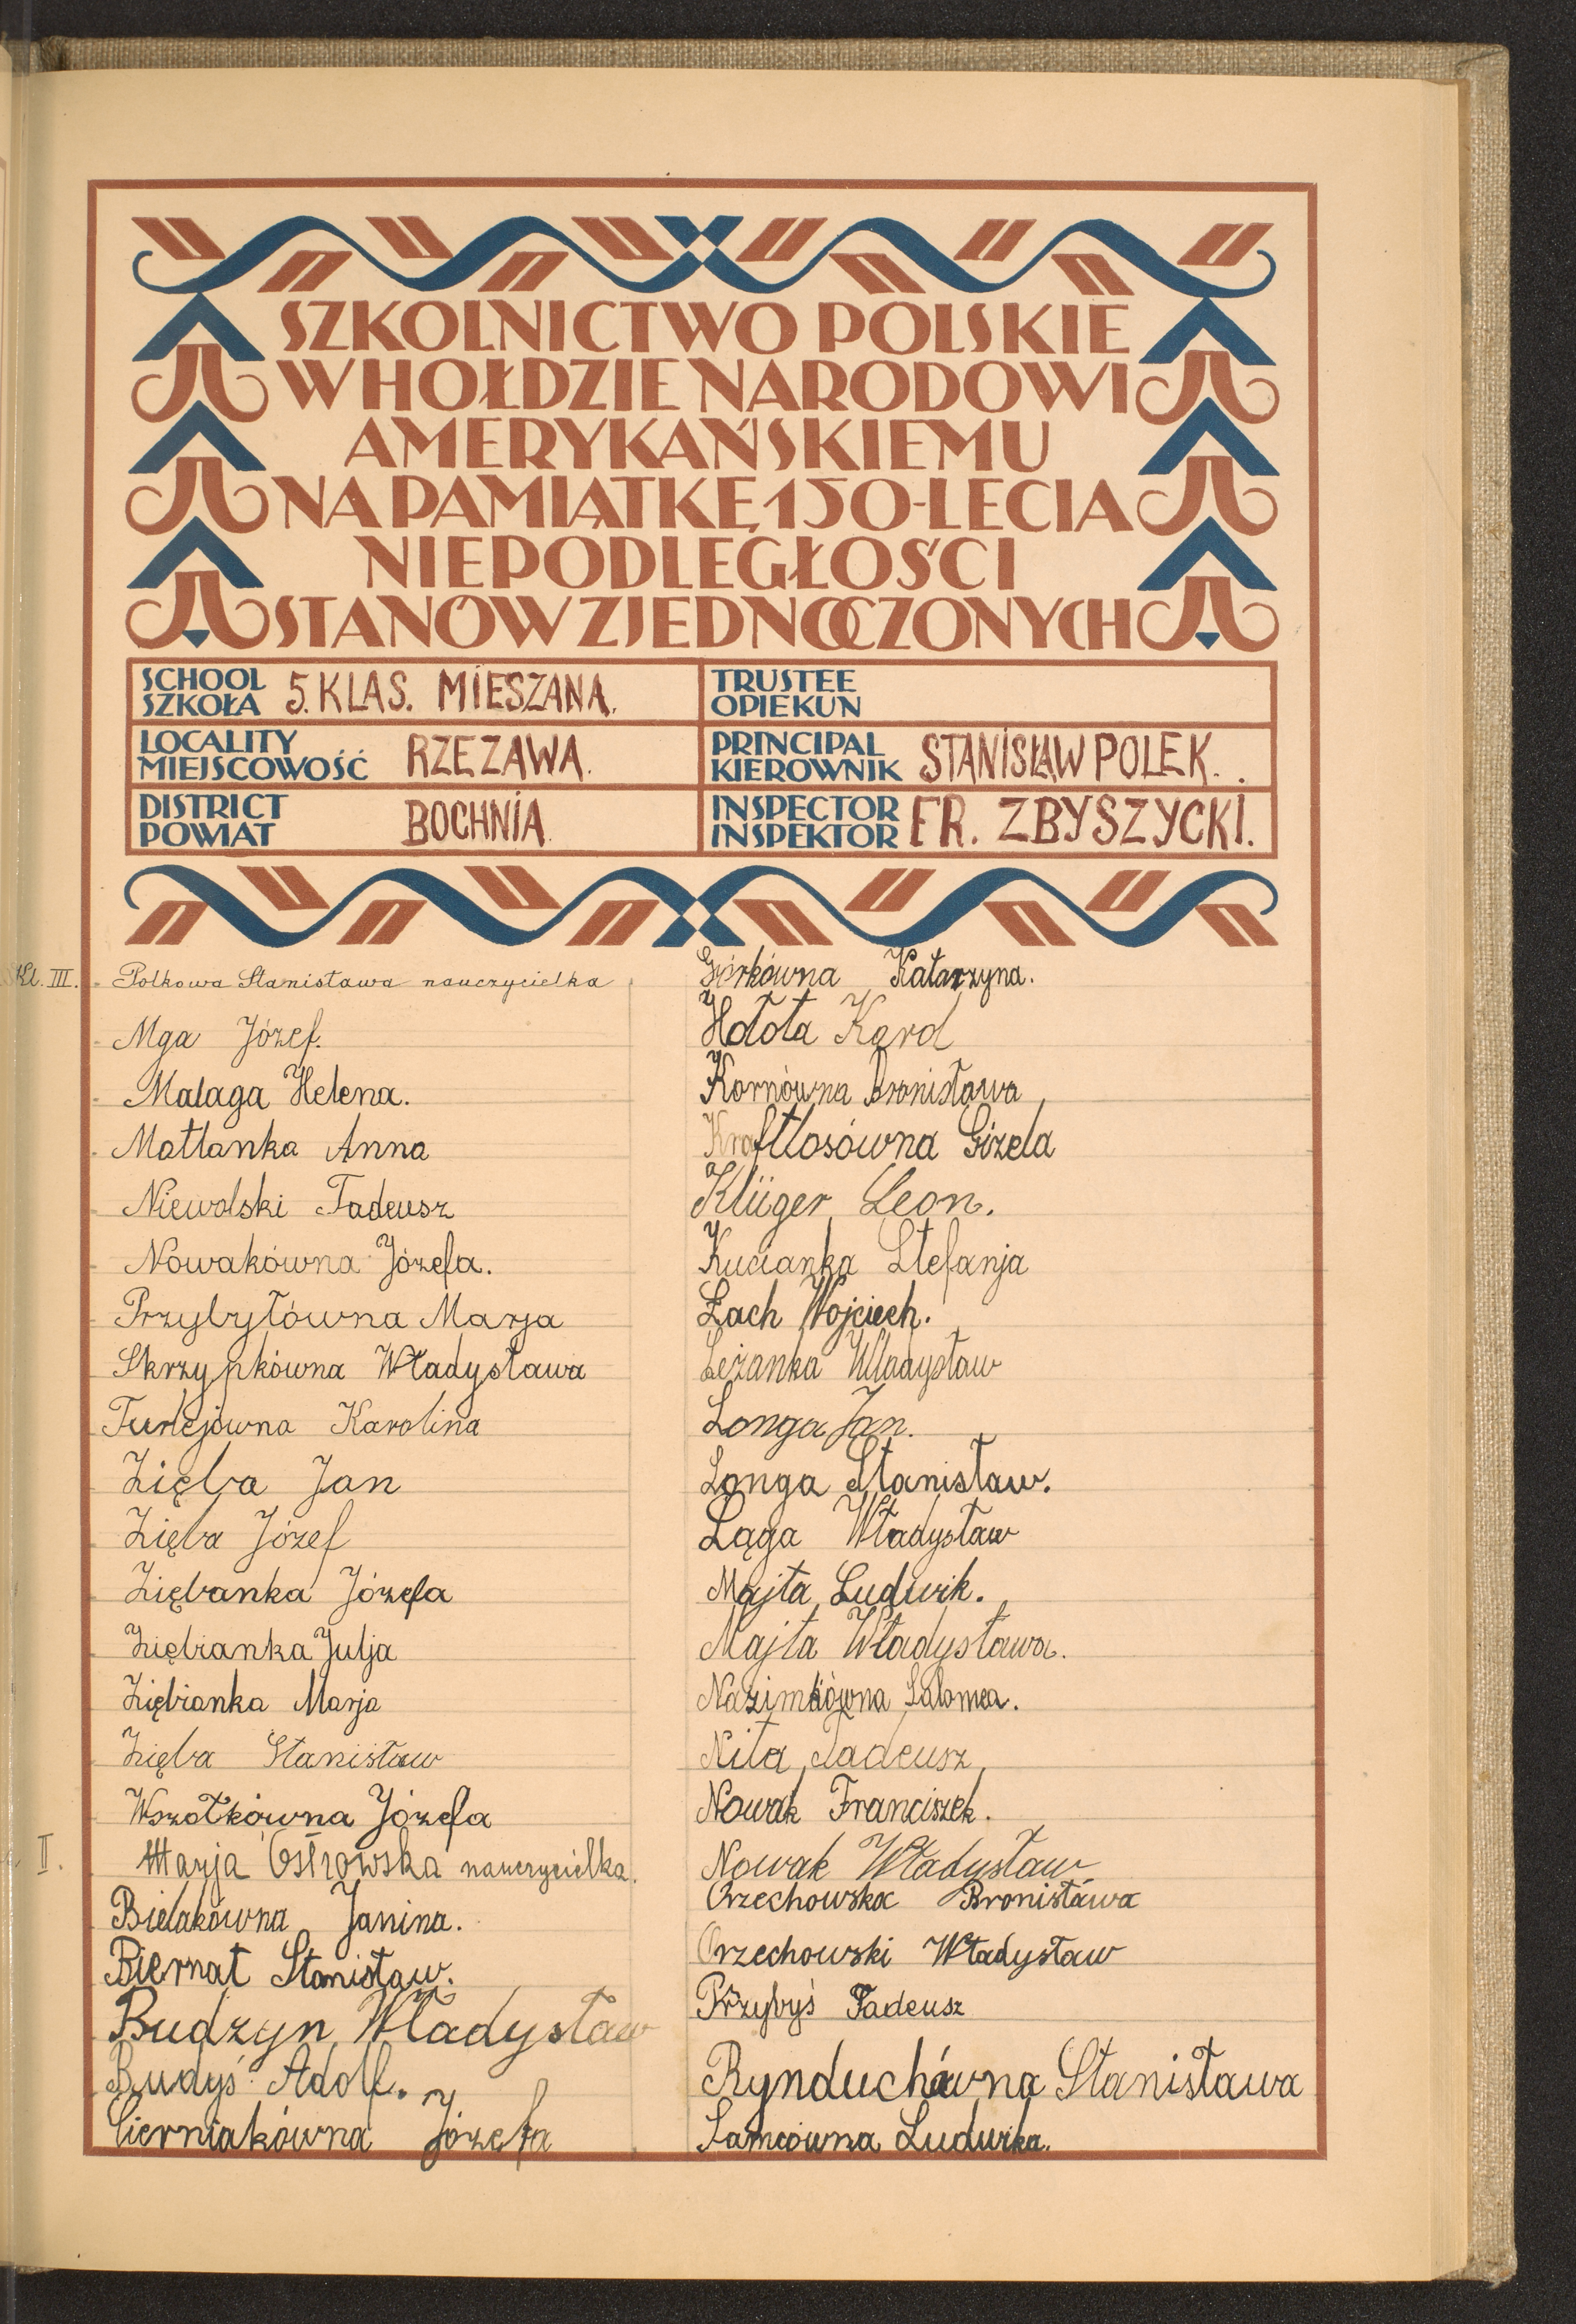 SZKOLNICTWO POLSKIE
W HOŁDZIE NARODOWI
AMERYKAŃSKIEMU
NA PAMIĄTKĘ 150-LECIA
NIEPODLEGŁOŚCI
STANÓW ZJEDNOCZONYCH
SCHOOL
SZKOŁA 5. KLAS. MIESZANA.
TRUSTEE
OPIEKUN
LOCALITY
MIEJSCOWOŚĆ RZEZAWA.
PRINCIPAL
KIEROWNIK STANISŁAW POLEK.
DISTRICT
POWIAT BOCHNIA
INSPECTOR
INSPEKTOR FR. ZBYSZYCKI.
Kl. III. Polkowa Stanisława nauczycielka
Mga Józef.
Malaga Helena.
Matlanka Anna
Niewolski Tadeusz
Nowakówna Józefa.
Przybyłówna Marja
Skrzypkówna Władysława
Turlejówna Karolina
Zięba Jan
Zięba Józef
Ziębanka Józefa
Ziębianka Julja
Ziębianka Marja
Zięba Stanisław
Wszołkówna Józefa
II. Marja Ostrowska nauczycielka.
Bielakówna Janina.
Biernat Stanisław.
Budzyn Władysław
Budyś Adolf.
Cierniakówna Józefa
Górkówna Katarzyna.
Hołota Karol
Kornówna Bronisława
Kraftlosówna Gizela
Klüger Leon.
Kucianka Stefanja
Łach Wojciech.
Leżanka Władysław
Longa Jan.
Longa Stanisław.
Ląga Władysław
Majta Ludwik.
Majta Władysława.
Nazimkówna Salomea.
Nita Tadeusz
Nowak Franciszek.
Nowak Władysław
Orzechowska Bronisława
Orzechowski Władysław
Przybyś Tadeusz
Rynduchówna Stanisława
Samcówna Ludwika.